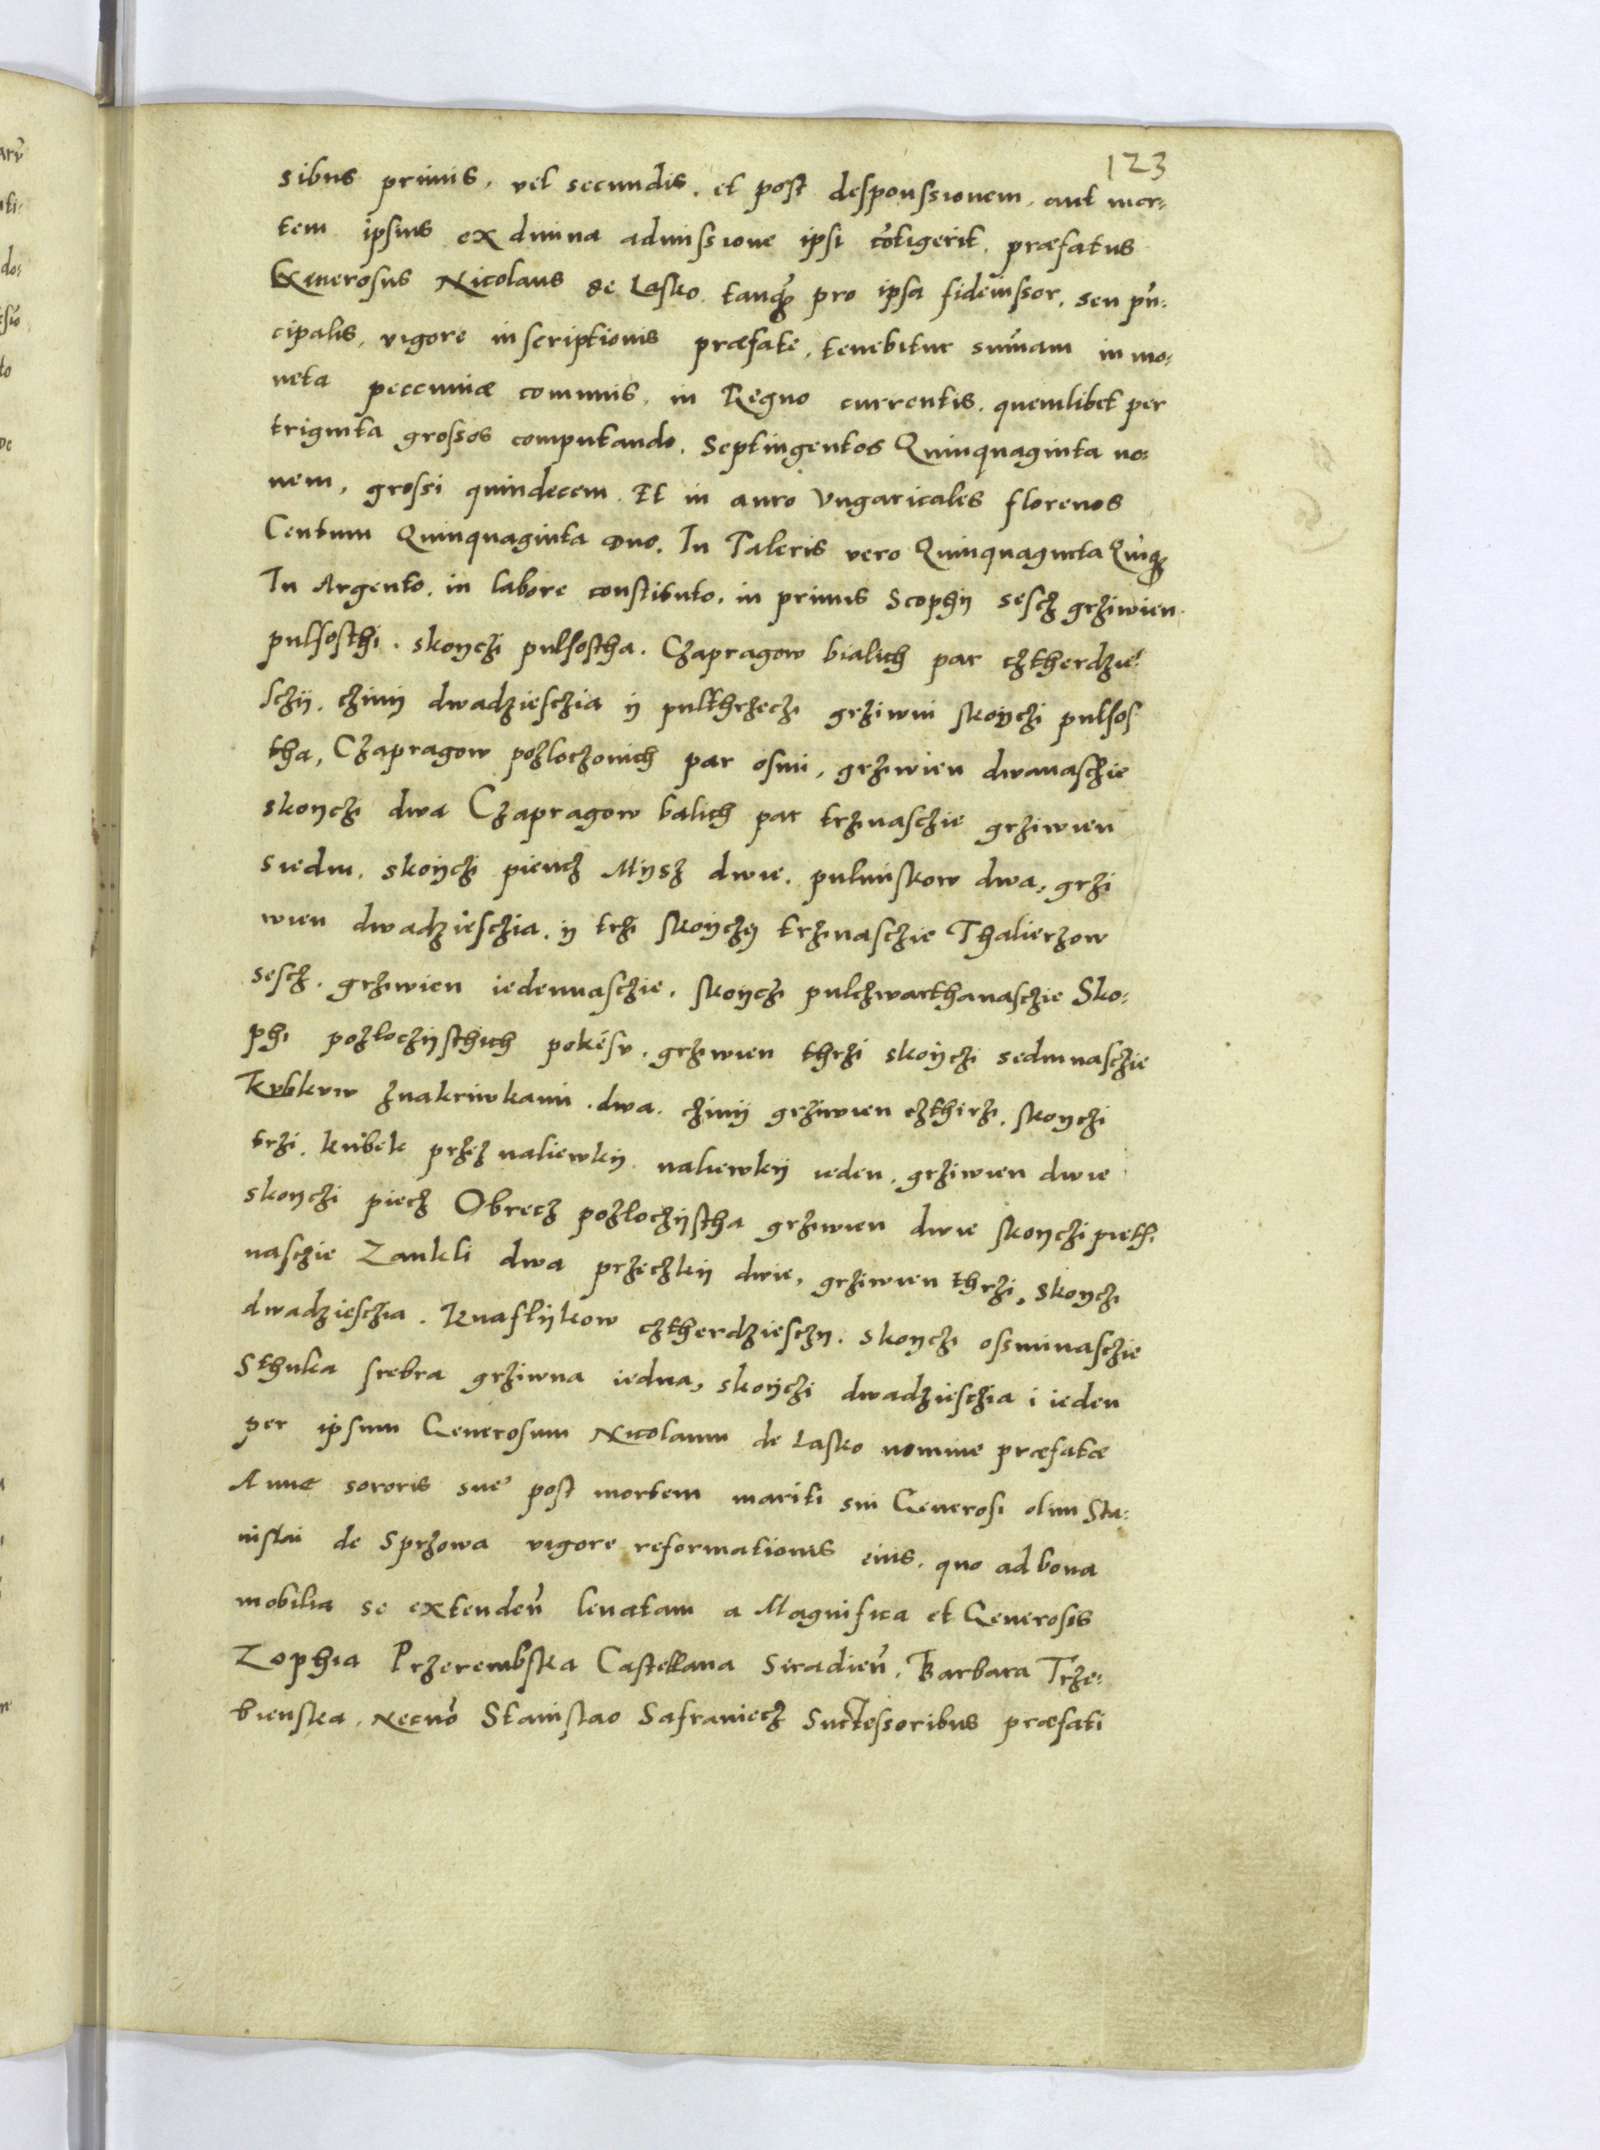 123
sibus primis, vel secundis, et post desponssionem, aut mor-
tem ipsius ex diuina admissione ipsi cõtigerit, præfatus
Generosus Nicolaus de Lasko tanq̃ pro ipsa fideiussor, seu prĩ-
cipalis, vigore inscriptionis præfate, tenebitur sum̃am in mo-
neta peccuniæ communis, in Regno currentis, quemlibet per
triginta grossos computando, Septingentos Quinquaginta no-
uem, grossi quindecem. Et in auro Vngaricales florenos
Centum Quinquaginta Duo. In Taleris vero Quinquaginta Quĩq3
In Argento, in labore constituto, in primis Scophy sescz grziwien
pulsosthi, skoyczi pulsostha. Czapragow bialich par cztherdzie
sczij, czinij dwadzieszia ij pulthrzeczi grziwni skoyczi pulsos
tha, Czapragow pozloczonich par osmi, grziwien dwanasczie
skoyczi dwa Czapragow balich par trzinasczie grziwien
siedm, skoyczi piencz Mijsz dwie, pulmiskow dwa, grzi
wien dwadzieszia, ij trzi skoyczij trzinasczie Thalierzow
sescz, grziwien iedennasczie, skoyczi pulczwarthanasczie Sko-
phi pozloczijsthich pokesv, grziwien thrzi skoyczi sedmnasczie
Kvbkvw znakriwkami dwa, czinij grziwien czthirzi, skoyczi
trzi, kubek przez naliewkij, naliewkij ieden, grziwien dwie
skoyczi piecz Obrecz pozloczijstha grziwien dwie skoyczi pieth
nasczie Zankli dwa przeczkij dwie, grziwien thrzi, skoyczi
dwadzieszia. Knaflijkow cztherdziesczy, skoyczi ossminasczie
Sthuka srebra grziwna iedna, skoyczi dwadzieszia i ieden
per ipsum Generosum Nicolaum de Lasko nomine præfatæ
Annæ sororis sue post mortem mariti sui Generosi olim Sta-
nislai de Sprzowa vigore reformationis eius, quo ad bona
mobilia se extendeñ leuatam a Magnifica et Generosis
Zophia Przerembska Castellana Siradieñ, Barbara Trze-
bienska, Necnõ Stanislao Safraniecz Suctessoribus præfati